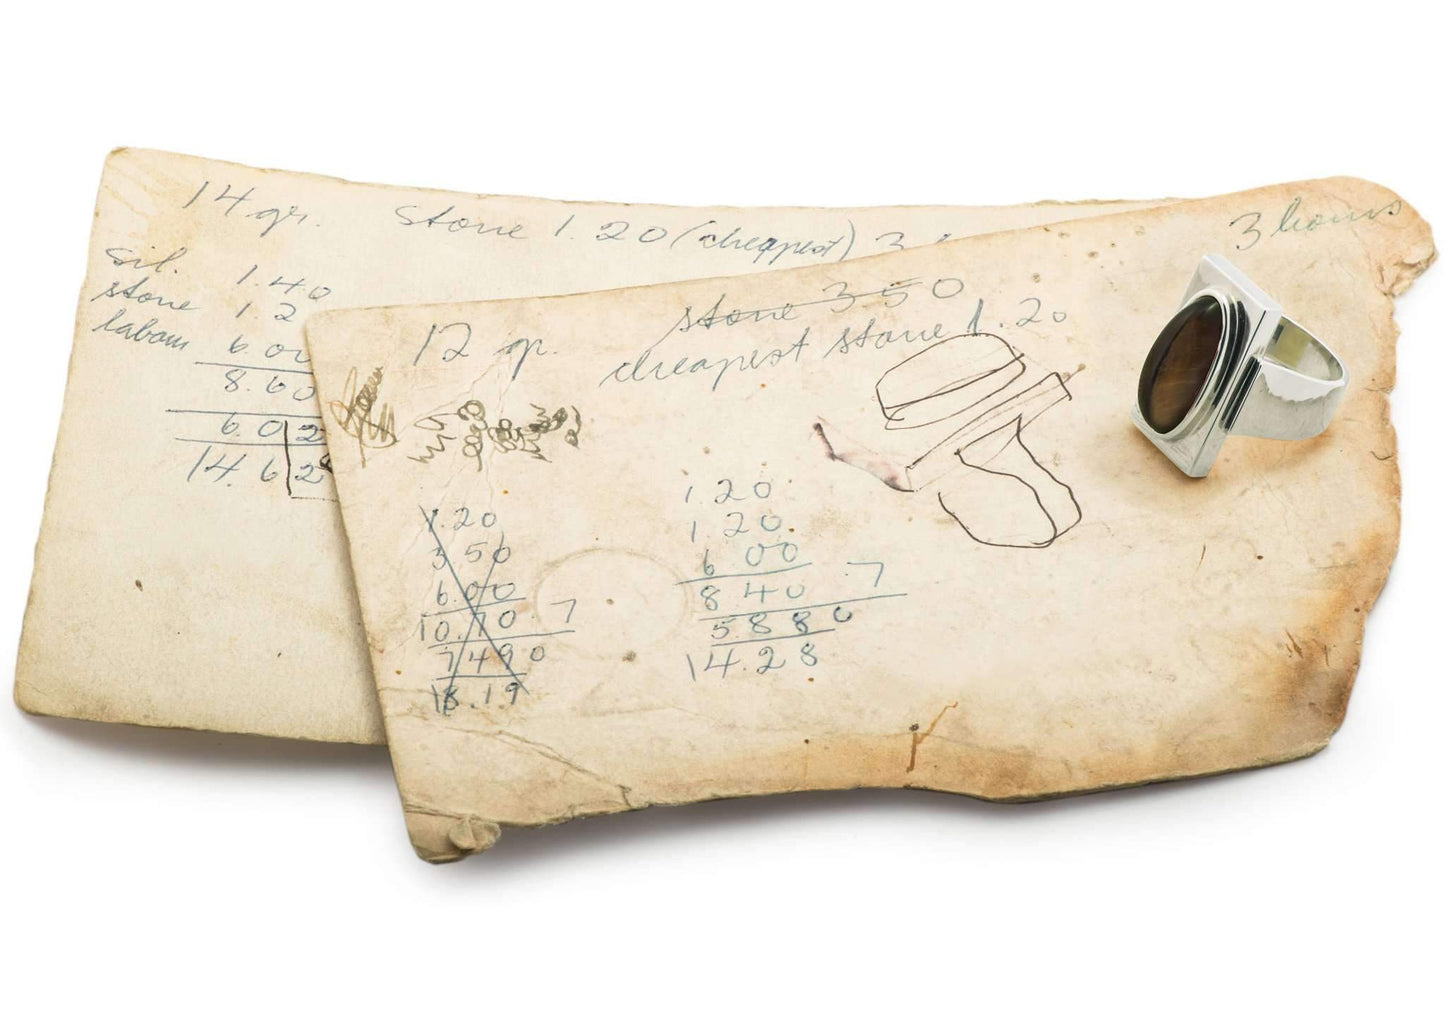 14 gr. Stone 1.20 (cheapest) 3
sil. 1.40
stone 1.2
labour 6.00
8.60
6.02
14.62
3 hours
12 gr.
stone 3 50
cheapest stone 1.20
1.20
3 50
6.00
10.70 7
7490
18.19
1 20
1 20
6 00
8 40 7
5880
14.28